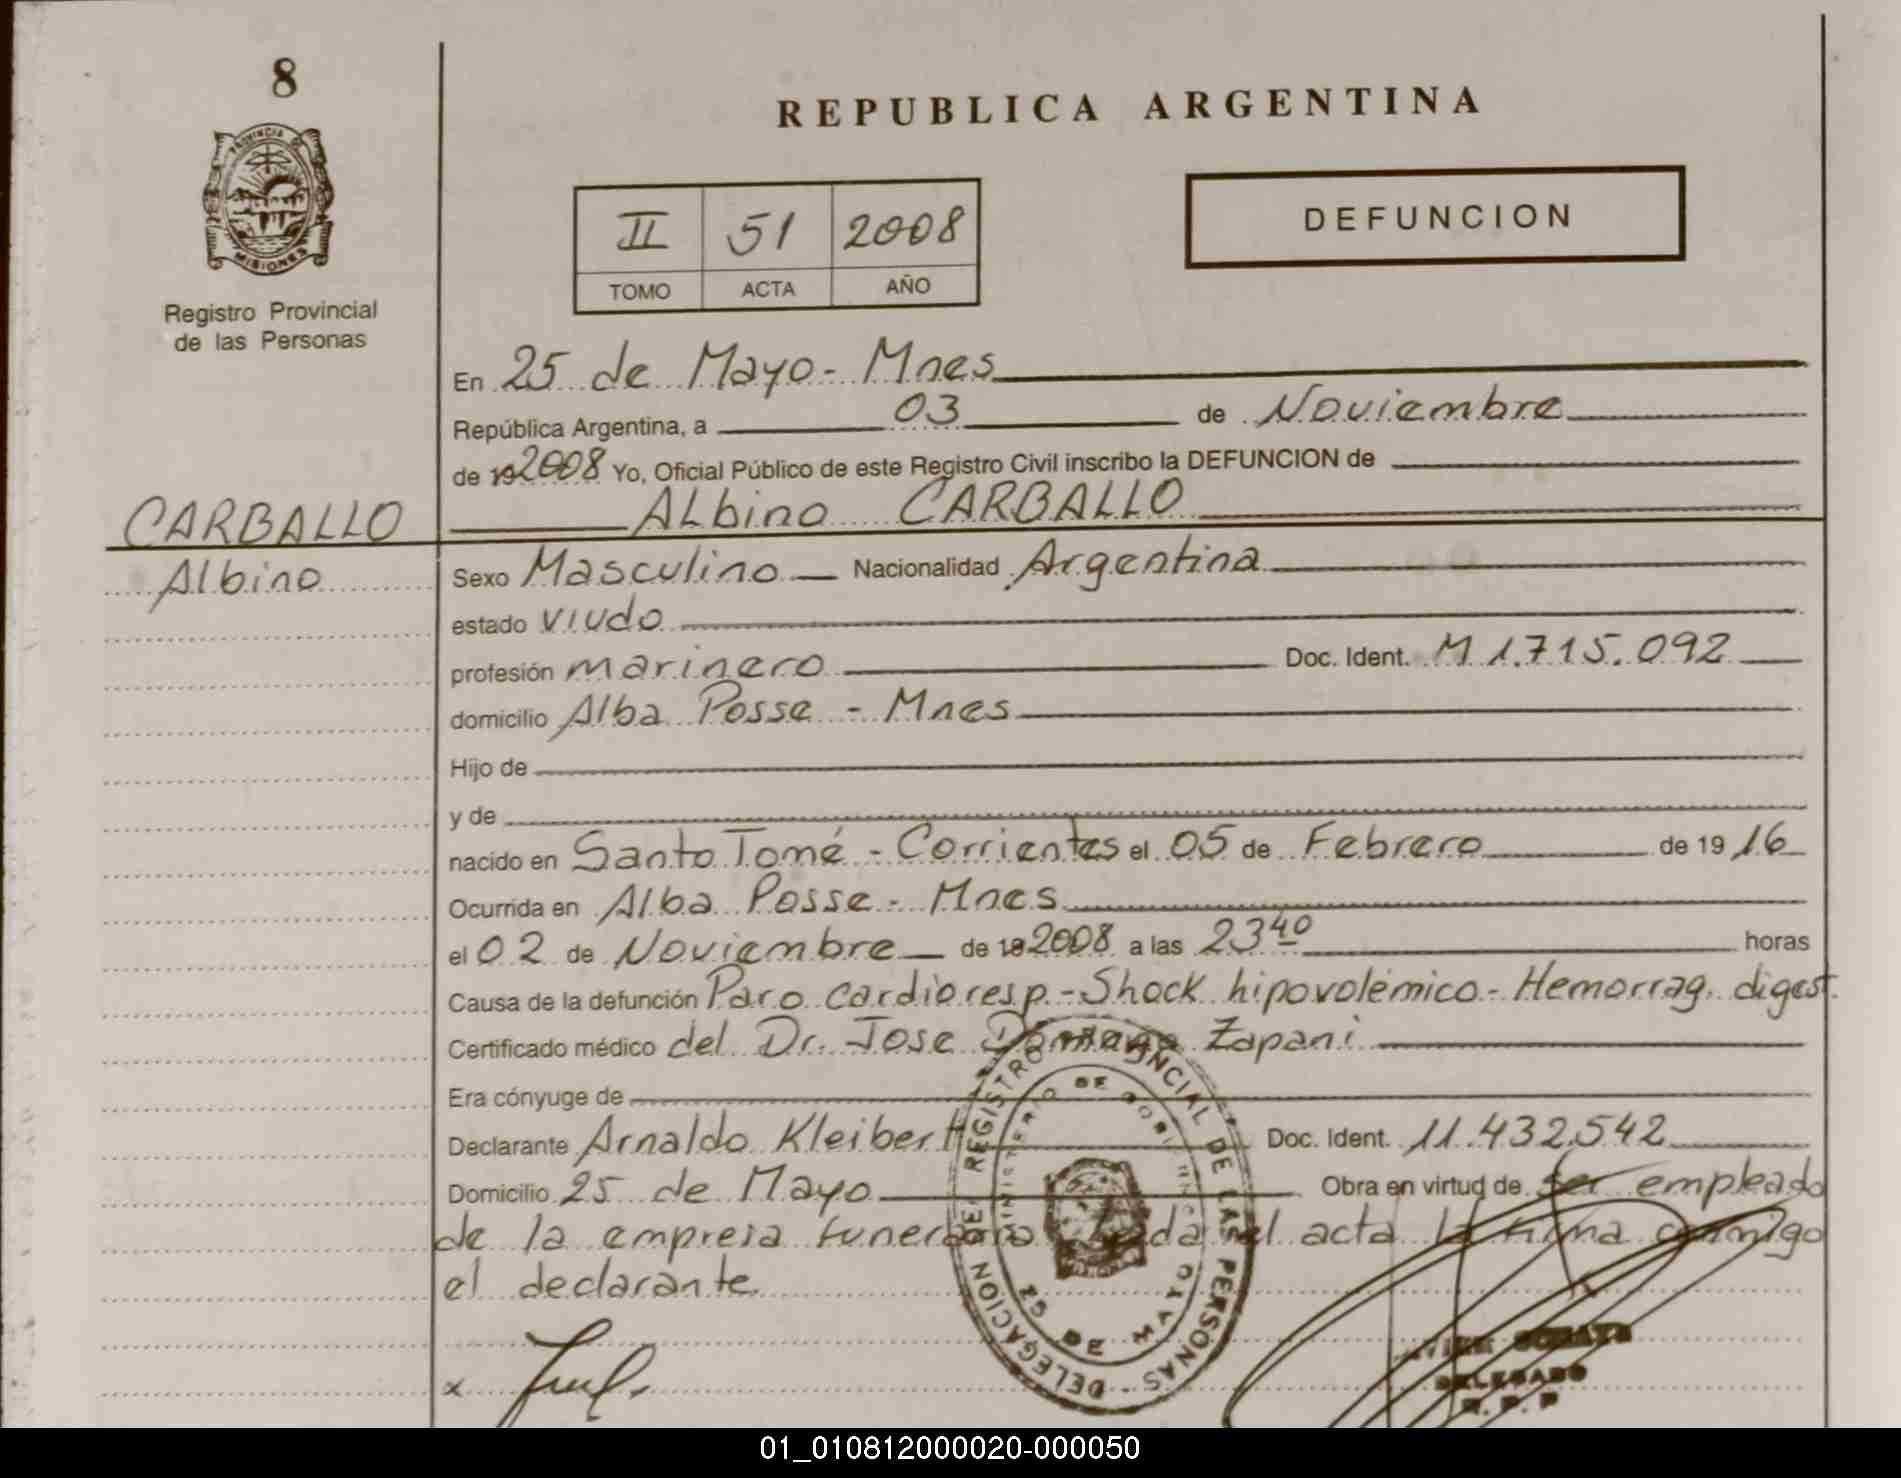 8
REPUBLICA ARGENTINA
PROVINCIA
MISIONES
Registro Provincial
de las Personas
II 51 2008
TOMO ACTA AÑO
DEFUNCION
En 25 de Mayo - Mnes
República Argentina, a 03 de Noviembre
de 19 2008 Yo, Oficial Público de este Registro Civil inscribo la DEFUNCION de
Albino CARBALLO
CARBALLO
Albino
Sexo Masculino Nacionalidad Argentina
estado viudo
profesión marinero Doc. Ident. M 1.715.092
domicilio Alba Posse - Mnes
Hijo de
y de
nacido en Santo Tomé - Corrientes el 05 de Febrero de 19 16
Ocurrida en Alba Posse - Mnes
el 02 de Noviembre de 19 2008 a las 23 40 horas
Causa de la defunción Paro cardioresp. - Shock hipovolémico - Hemorrag. digest.
Certificado médico del Dr. Jose Zapani
Era cónyuge de
Declarante Arnaldo Kleibert Doc. Ident. 11.432.542
Domicilio 25 de Mayo Obra en virtud de ser empleado
de la empresa funeraria acta la firma conmigo
el declarante.
x
DELEGACION DEL REGISTRO PROVINCIAL DE LAS PERSONAS
MINISTERIO DE
25 DE MAYO
DELEGADO
R.P.P
01_010812000020-000050